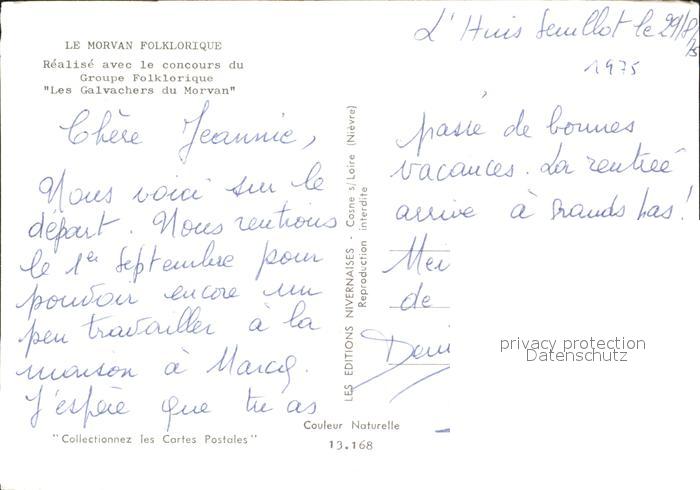 LE MORVAN FOLKLORIQUE
Réalisé avec le concours du
Groupe Folklorique
"Les Galvachers du Morvan"
L'Huis Seuillot le 29/8/75
1975
Chère Jeannie,
Nous voici sur le
départ. Nous rentrons
le 1er Septembre pour
pouvoir encore un
peu travailler à la
maison à Marcq.
J'espère que tu as
passé de bonnes
vacances. La rentrée
arrive à grands pas!
de
LES EDITIONS NIVERNAISES - Cosne s/Loire (Nièvre)
Reproduction interdite
privacy protection
Datenschutz
"Collectionnez les Cartes Postales"
Couleur Naturelle
13.168